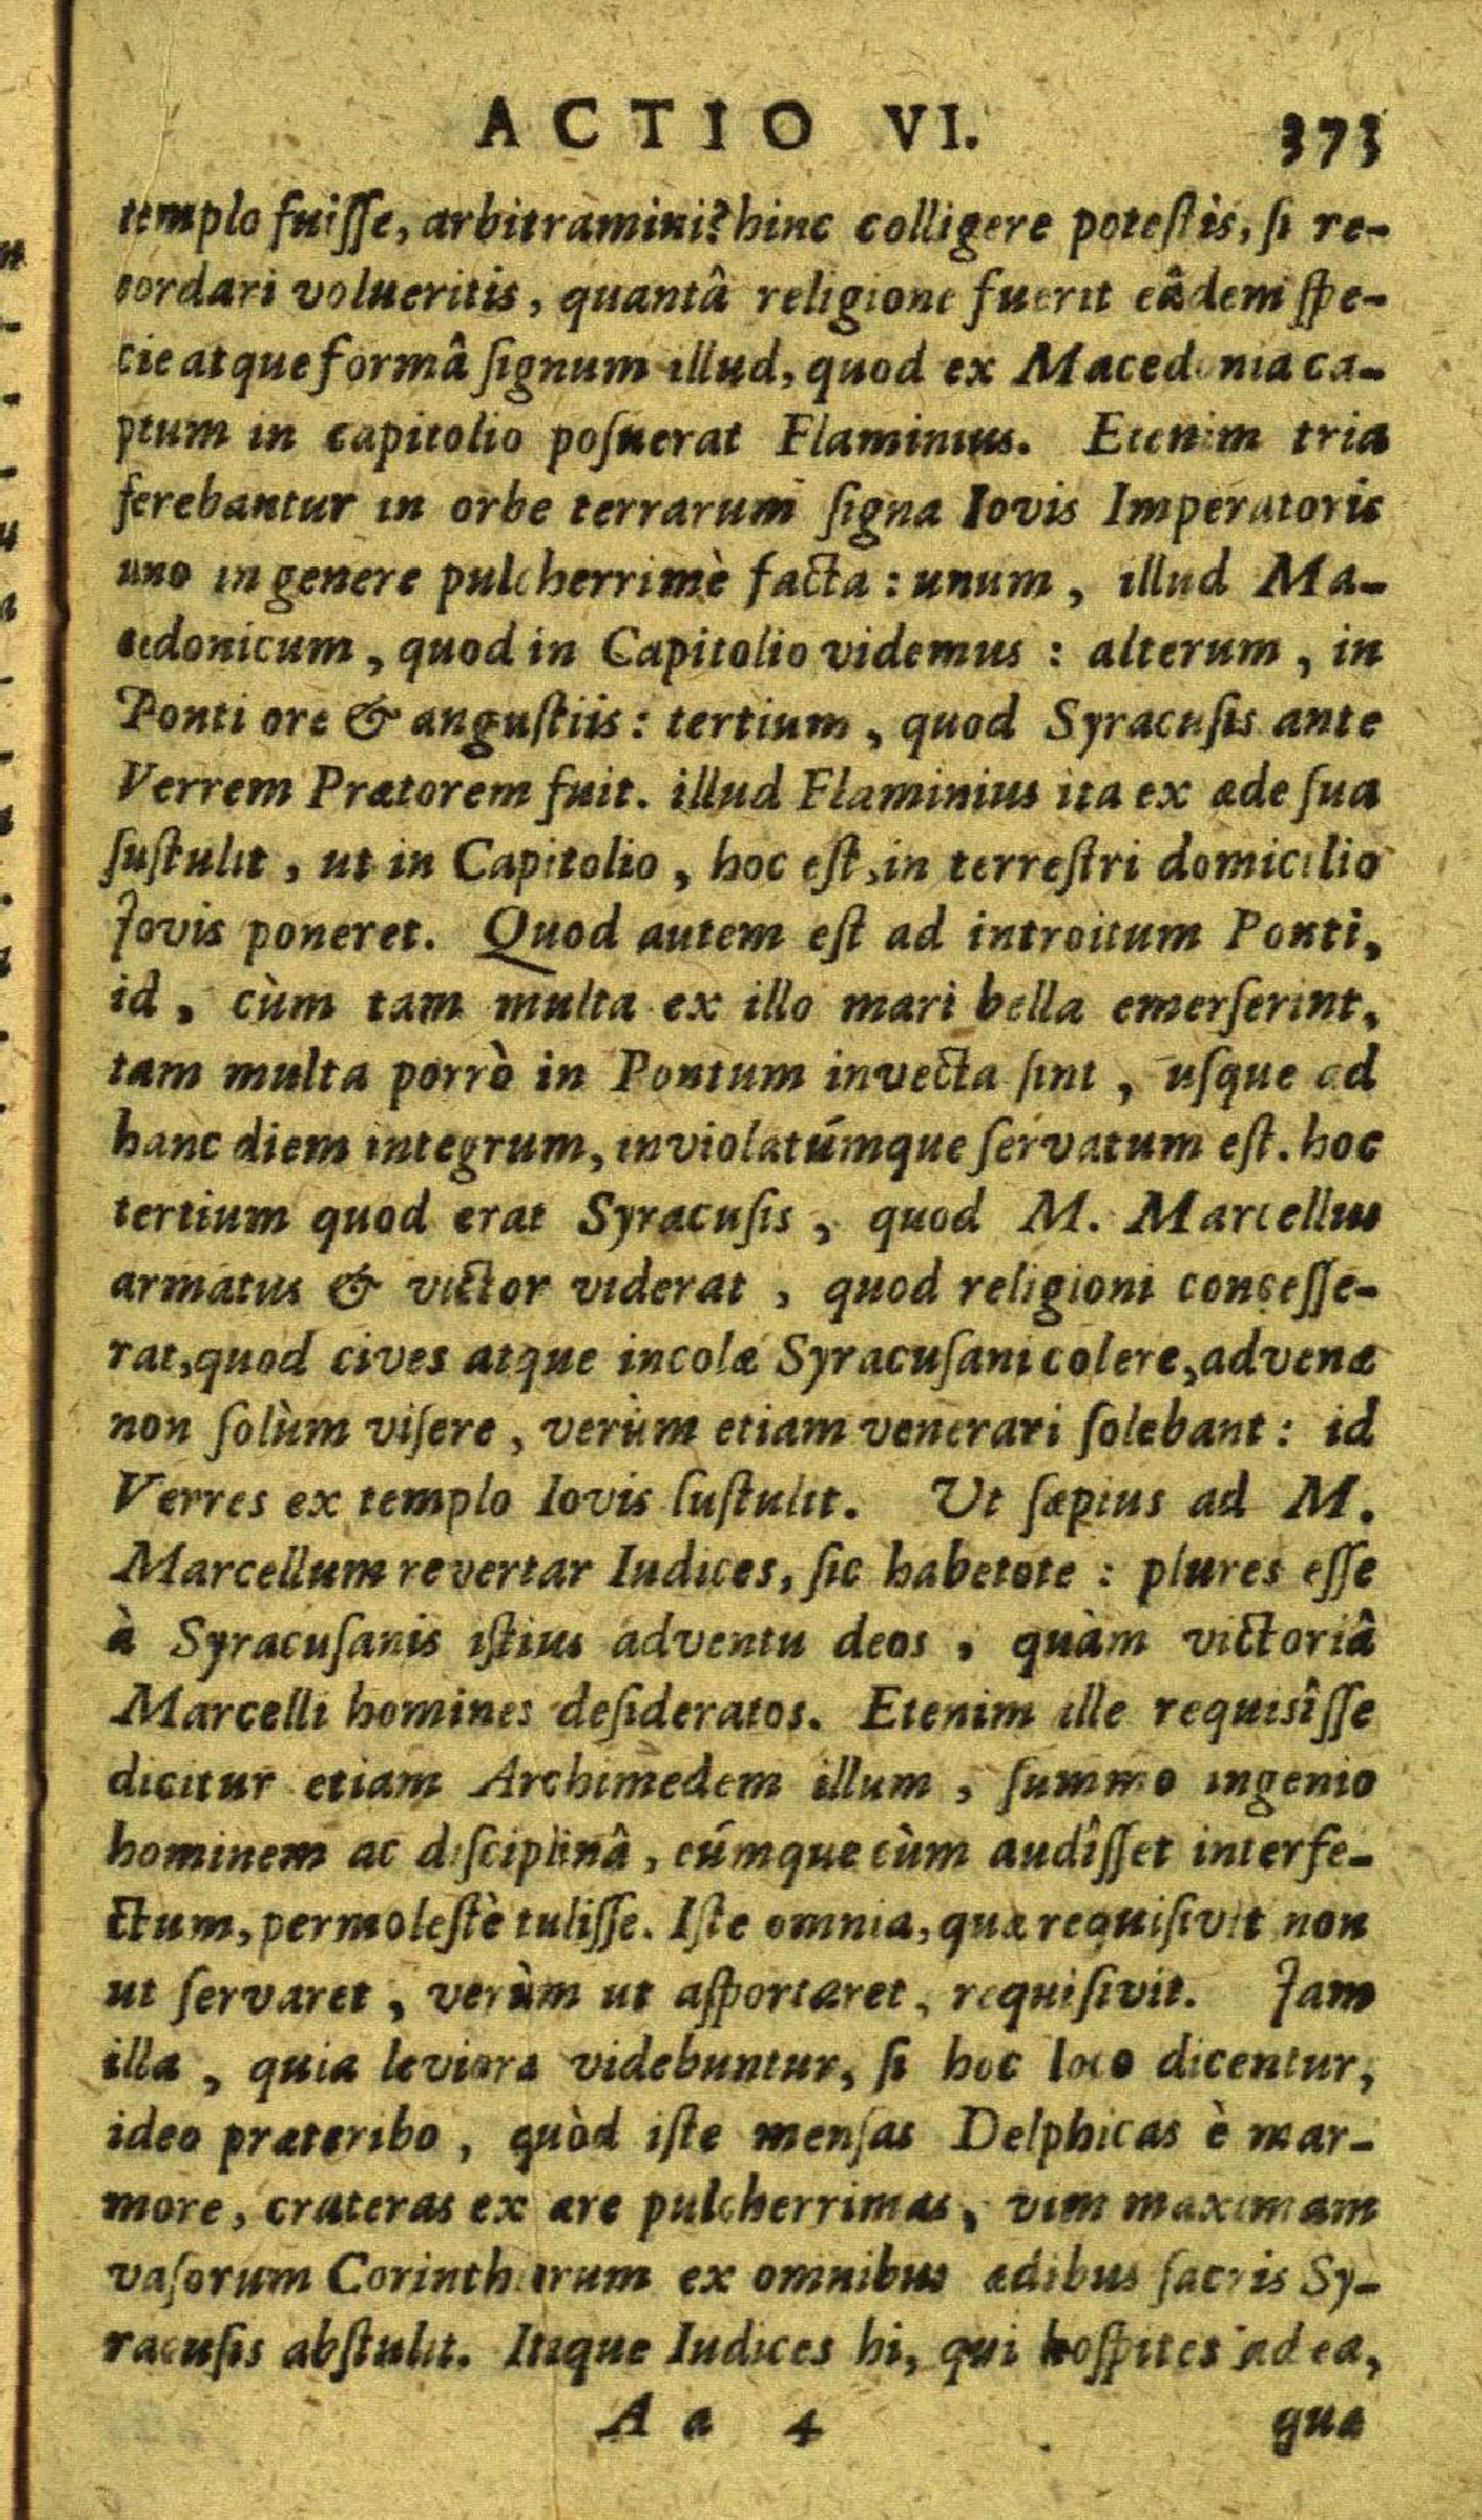 ACTIO VI. 373
templo fuiſſe, arbitramini? hinc colligere poteſtis, ſi re-
cordari volueritis, quantâ religione fuerit eâdem ſpe-
cie atque formâ ſignum illud, quod ex Macedonia ca-
ptum in capitolio poſuerat Flaminius. Etenim tria
ferebantur in orbe terrarum ſigna Iovis Imperatoris
uno in genere pulcherrimè facta: unum, illud Ma-
cedonicum, quod in Capitolio videmus: alterum, in
Ponti ore & anguſtiis: tertium, quod Syracuſis ante
Verrem Prætorem fuit. illud Flaminius ita ex æde ſua
ſuſtulit, ut in Capitolio, hoc eſt, in terreſtri domicilio
Jovis poneret. Quod autem eſt ad introitum Ponti,
id, cùm tam multa ex illo mari bella emerſerint,
tam multa porrò in Pontum invecta ſint, uſque ad
hanc diem integrum, inviolatúmque ſervatum eſt. hoc
tertium quod erat Syracuſis, quod M. Marcellus
armatus & victor viderat, quod religioni conceſſe-
rat, quod cives atque incolæ Syracuſani colere, advenæ
non ſolùm viſere, verùm etiam venerari ſolebant: id
Verres ex templo Iovis ſuſtulit. Ut ſæpius ad M.
Marcellum revertar Iudices, ſic habetote: plures eſſe
à Syracuſanis iſtius adventu deos, quàm victoriâ
Marcelli homines deſideratos. Etenim ille requisîſſe
dicitur etiam Archimedem illum, ſummo ingenio
hominem ac diſciplinâ, eúmque cùm audîſſet interfe-
ctum, permoleſtè tuliſſe. Iſte omnia, quæ requiſivit non
ut ſervaret, verùm ut aſportaret, requiſivit. Jam
illa, quia leviora videbuntur, ſi hoc loco dicentur,
ideo præteribo, quòd iſte menſas Delphicas è mar-
more, crateras ex ære pulcherrimas, vim maximam
vaſorum Corinthiorum ex omnibus ædibus ſacris Sy-
racuſis abſtulit. Itaque Iudices hi, qui hoſpites ad ea,
Aa 4 quæ